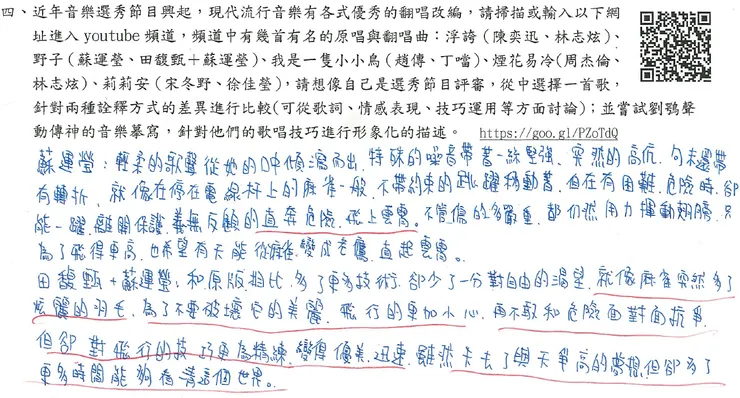 四、近年音樂選秀節目興起，現代流行音樂有各式優秀的翻唱改編，請掃描或輸入以下網
址進入 youtube 頻道，頻道中有幾首有名的原唱與翻唱曲：浮誇（陳奕迅、林志炫）、
野子（蘇運瑩、田馥甄＋蘇運瑩）、我是一隻小小鳥（趙傳、丁噹）、煙花易冷（周杰倫、
林志炫）、莉莉安（宋冬野、徐佳瑩），請想像自己是選秀節目評審，從中選擇一首歌，
針對兩種詮釋方式的差異進行比較（可從歌詞、情感表現、技巧運用等方面討論）；並嘗試劉鶚聲
動傳神的音樂摹寫，針對他們的歌唱技巧進行形象化的描述。 https://goo.gl/PZoTdQ
蘇運瑩：輕柔的歌聲從她的口中傾瀉而出，特殊的嗓音帶著一絲堅強、突然的高亢，句末還帶
有轉折，就像在停在電線杆上的麻雀一般，不帶約束的跳躍移動著，但在有困難、危險時，卻
能一躍離開保護，義無反顧的直奔危險，飛上雲霄。不管傷的多嚴重，都仍然用力揮動翅膀，只
為了飛得更高，也希望有天能從麻雀變成老鷹，直起雲霄。
田馥甄＋蘇運瑩：和原版相比，多了更多技術，卻少了一分對自由的渴望，就像麻雀突然多了
炫麗的羽毛，為了不要破壞它的美麗，飛行的更加小心，再不敢和危險面對面抗爭，
但卻對飛行的技巧更為精練，變得優美、迅速，雖然失去了與天爭高的夢想，但卻多了
更多時間能夠看清這個世界。